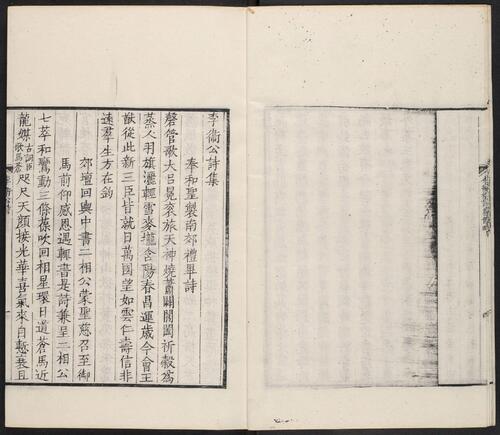 李衞公詩集
奉和聖製南郊禮畢詩
磬管歌大呂冕裘旅天神燒蕭闢閶闔祈穀爲
蒸人羽旗灑輕雪麥壠含陽春昌運歲今會王
猷從此新三臣皆就日萬國望如雲仁壽信非
遠羣生方在鈞
郊壇回輿中書二相公蒙聖慈召至御
馬前仰感恩遇輒書是詩兼呈二相公
七萃和鑾動三條葆吹回相星環日道蒼馬近
龍媒古詞臣歌馬蒼咫尺天顏接光華喜氣來自慙衰且